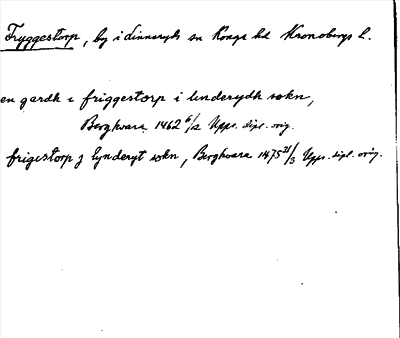 Fryggestorp, by i Linneryds sn Konga hd Kronobergs l.
en gardh i friggestorp i linderydh sokn,
Bergkvara 1462 6/12 Upps. dipl. orig.
frigistorp j lynderyt sokn, Bergkvara 1475 21/3 Upps. dipl. orig.